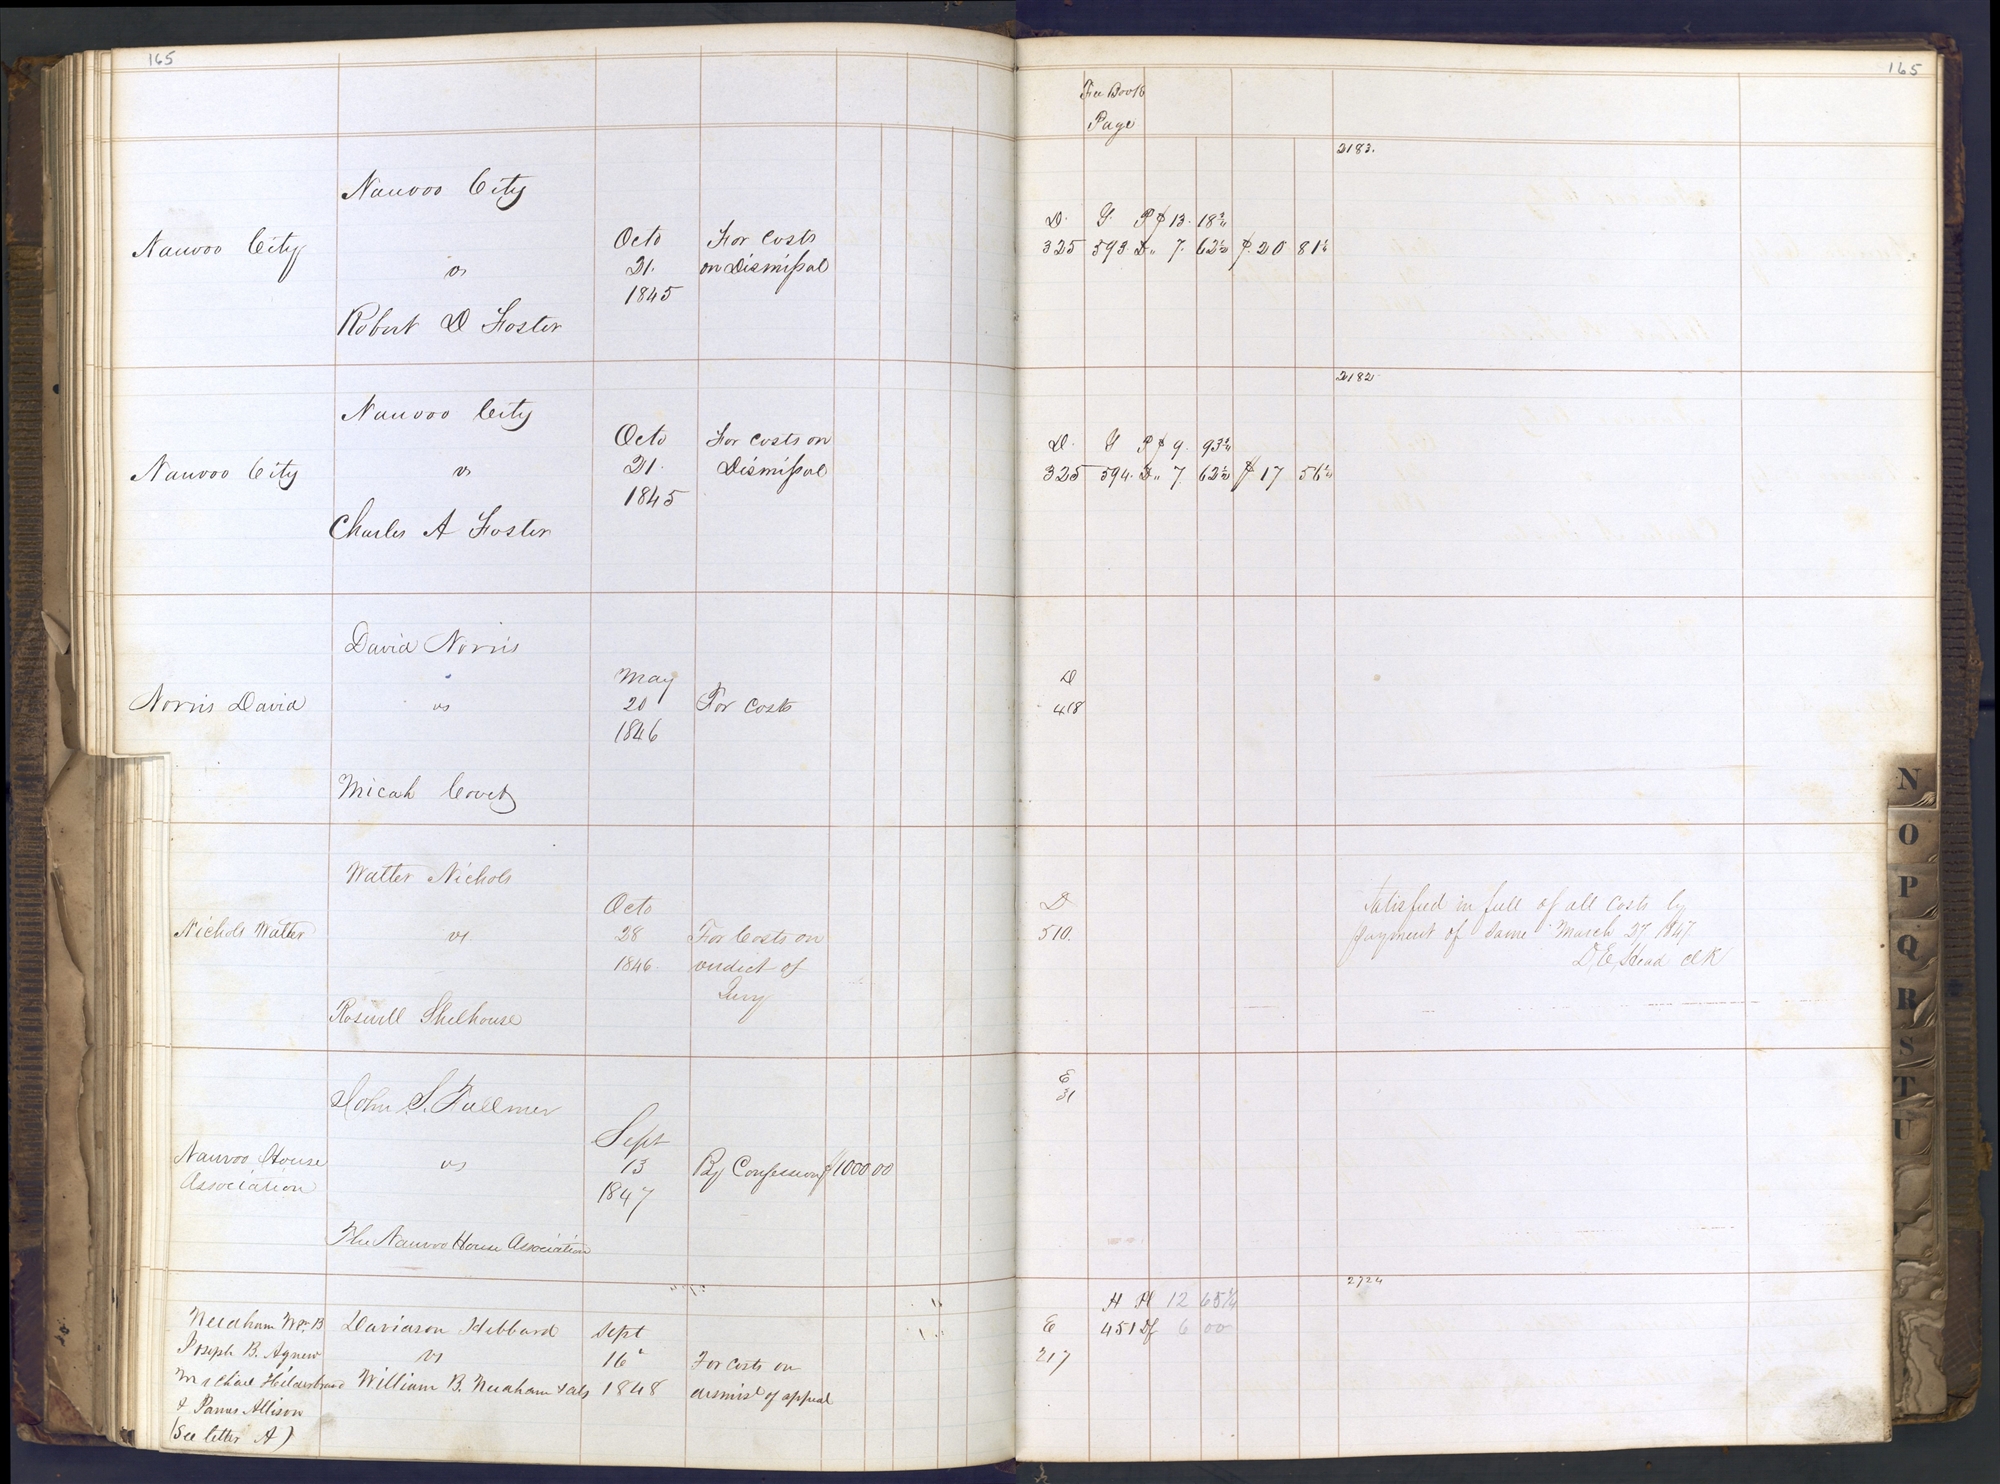 165
Nauvoo City
Nauvoo City
vs
Robert D Foster
Octo
21.
1845
For costs
on Dismissal
Nauvoo City
Nauvoo City
vs
Charles A Foster
Octo
21.
1845
For costs on
Dismissal
Norris David
David Norris
vs
Micah
May
20
1846
For costs
Nichols Walter
Walter Nichols
vs
Roswell Shelhouse
Octo
28
1846
For Costs on
verdict of
Jury
Nauvoo House
Association
John S. Fullmer
vs
The Nauvoo House Association
Sept
13
1847
By Confession $1000 00
Needham Wm B
Joseph B. Agnew
Michael Hilderbrand
& James Allison
(See letter A)
Davidson Hibbard
vs
William B. Needham & als
Sept
16"
1848
For costs on
dismisl of appeal
165
Fee Book
Page
2183.
D. G. P $ 13. 18¾
325 593 D " 7. 62½ $ 20 81¼
2182
D. G P $ 9. 93¾
325 594. D " 7. 62½ $ 17 56¼
D
418
D
510.
Satisfied in full of all Costs by
payment of same March 27 1847
D. E. Head clk
E
31
2724
H Pl 12 65¼
E 451 Df 6 00
217
N
O
P
Q
R
S
T
U